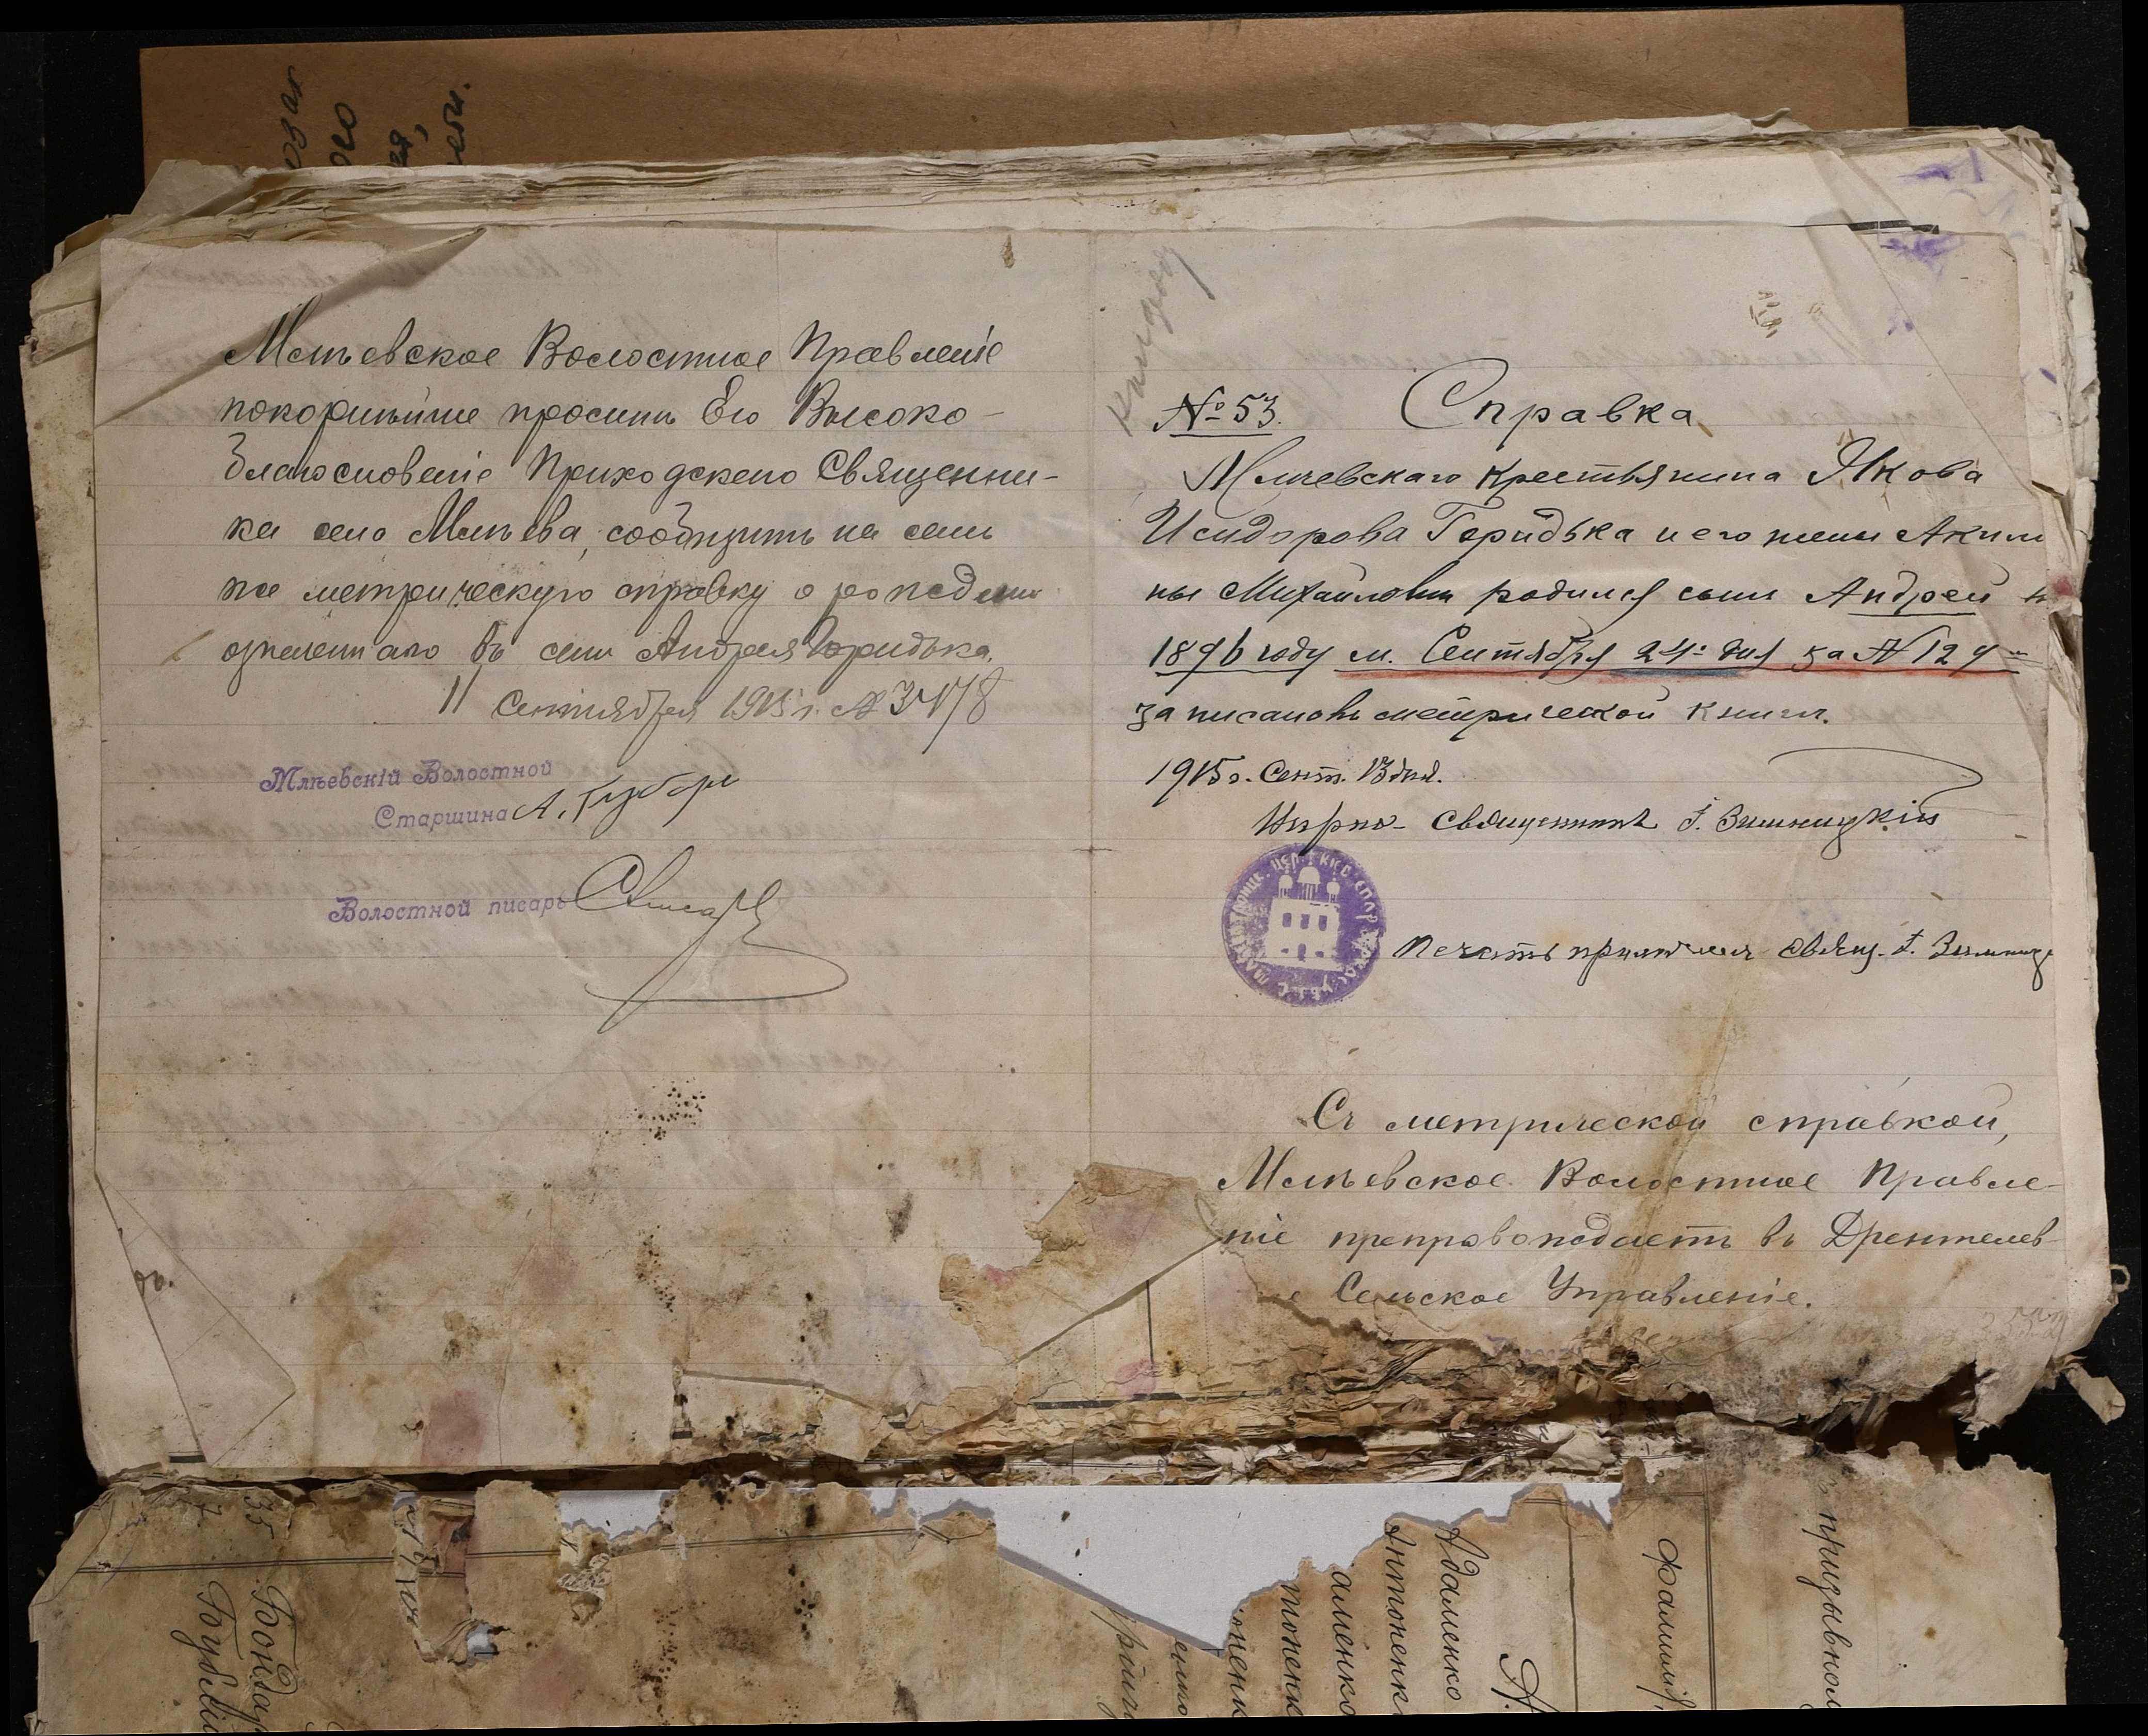 Млѣевское Волостное Правленіе
покорнѣйше проситъ Его Высоко-
благословеніе Приходскаго Священни-
ка села Млѣева, сообщить на семъ
же метрическую справку о рожденіи
означеннаго въ семъ Андрея Горидька.
11 Сентября 1915 г. № 3478
Млѣевскій Волостной
Старшина А.
Волостной писарь
№ 53. Справка
Млѣевскаго крестьянина Якова
Исидорова Горидька и его жены Акили
ны Михайловны родился сынъ Андрей
1896 году м. Сентября 24 дня за № 129
записанъ въ метрической книгѣ.
1915 г. Сент. 13 дня.
Священникъ І. Зимницкій
Печать приложилъ Свящ. І. Зимниц
Съ метрической справкой,
Млѣевское Волостное Правле-
ніе препровождаетъ въ Дрентелев
е Сельское Управленіе.
35
7
Бондар
призывной
фамилія,
А.
Адаменко
Антоненк
аменко
тоненк
оненк